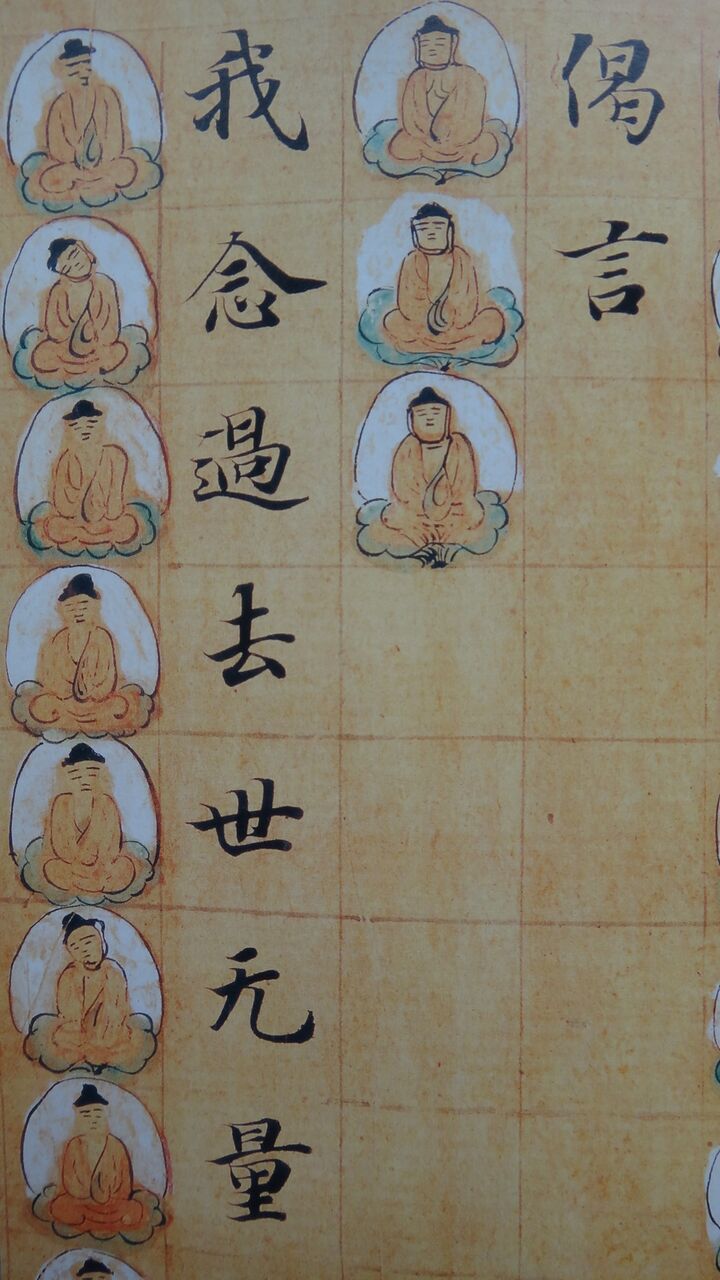 偈言
我念過去世无量